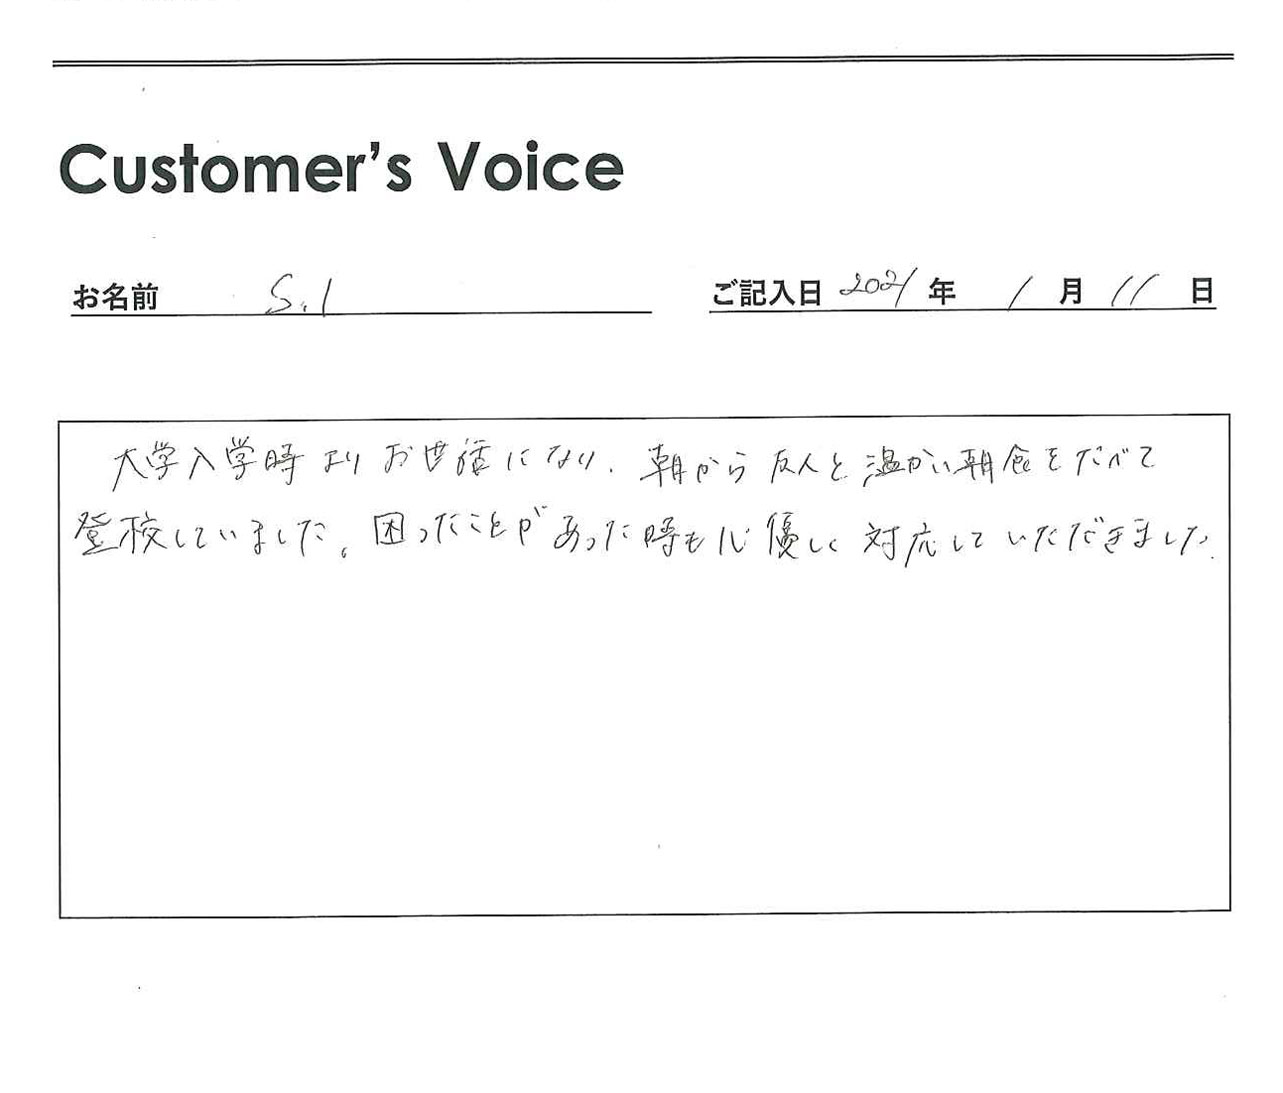 Customer's Voice
お名前 S.I ご記入日 2021年 1月 11日
大学入学時よりお世話になり、朝から友人と温かい朝食をたべて
登校していました。困ったことがあった時も心優しく対応していただきました。